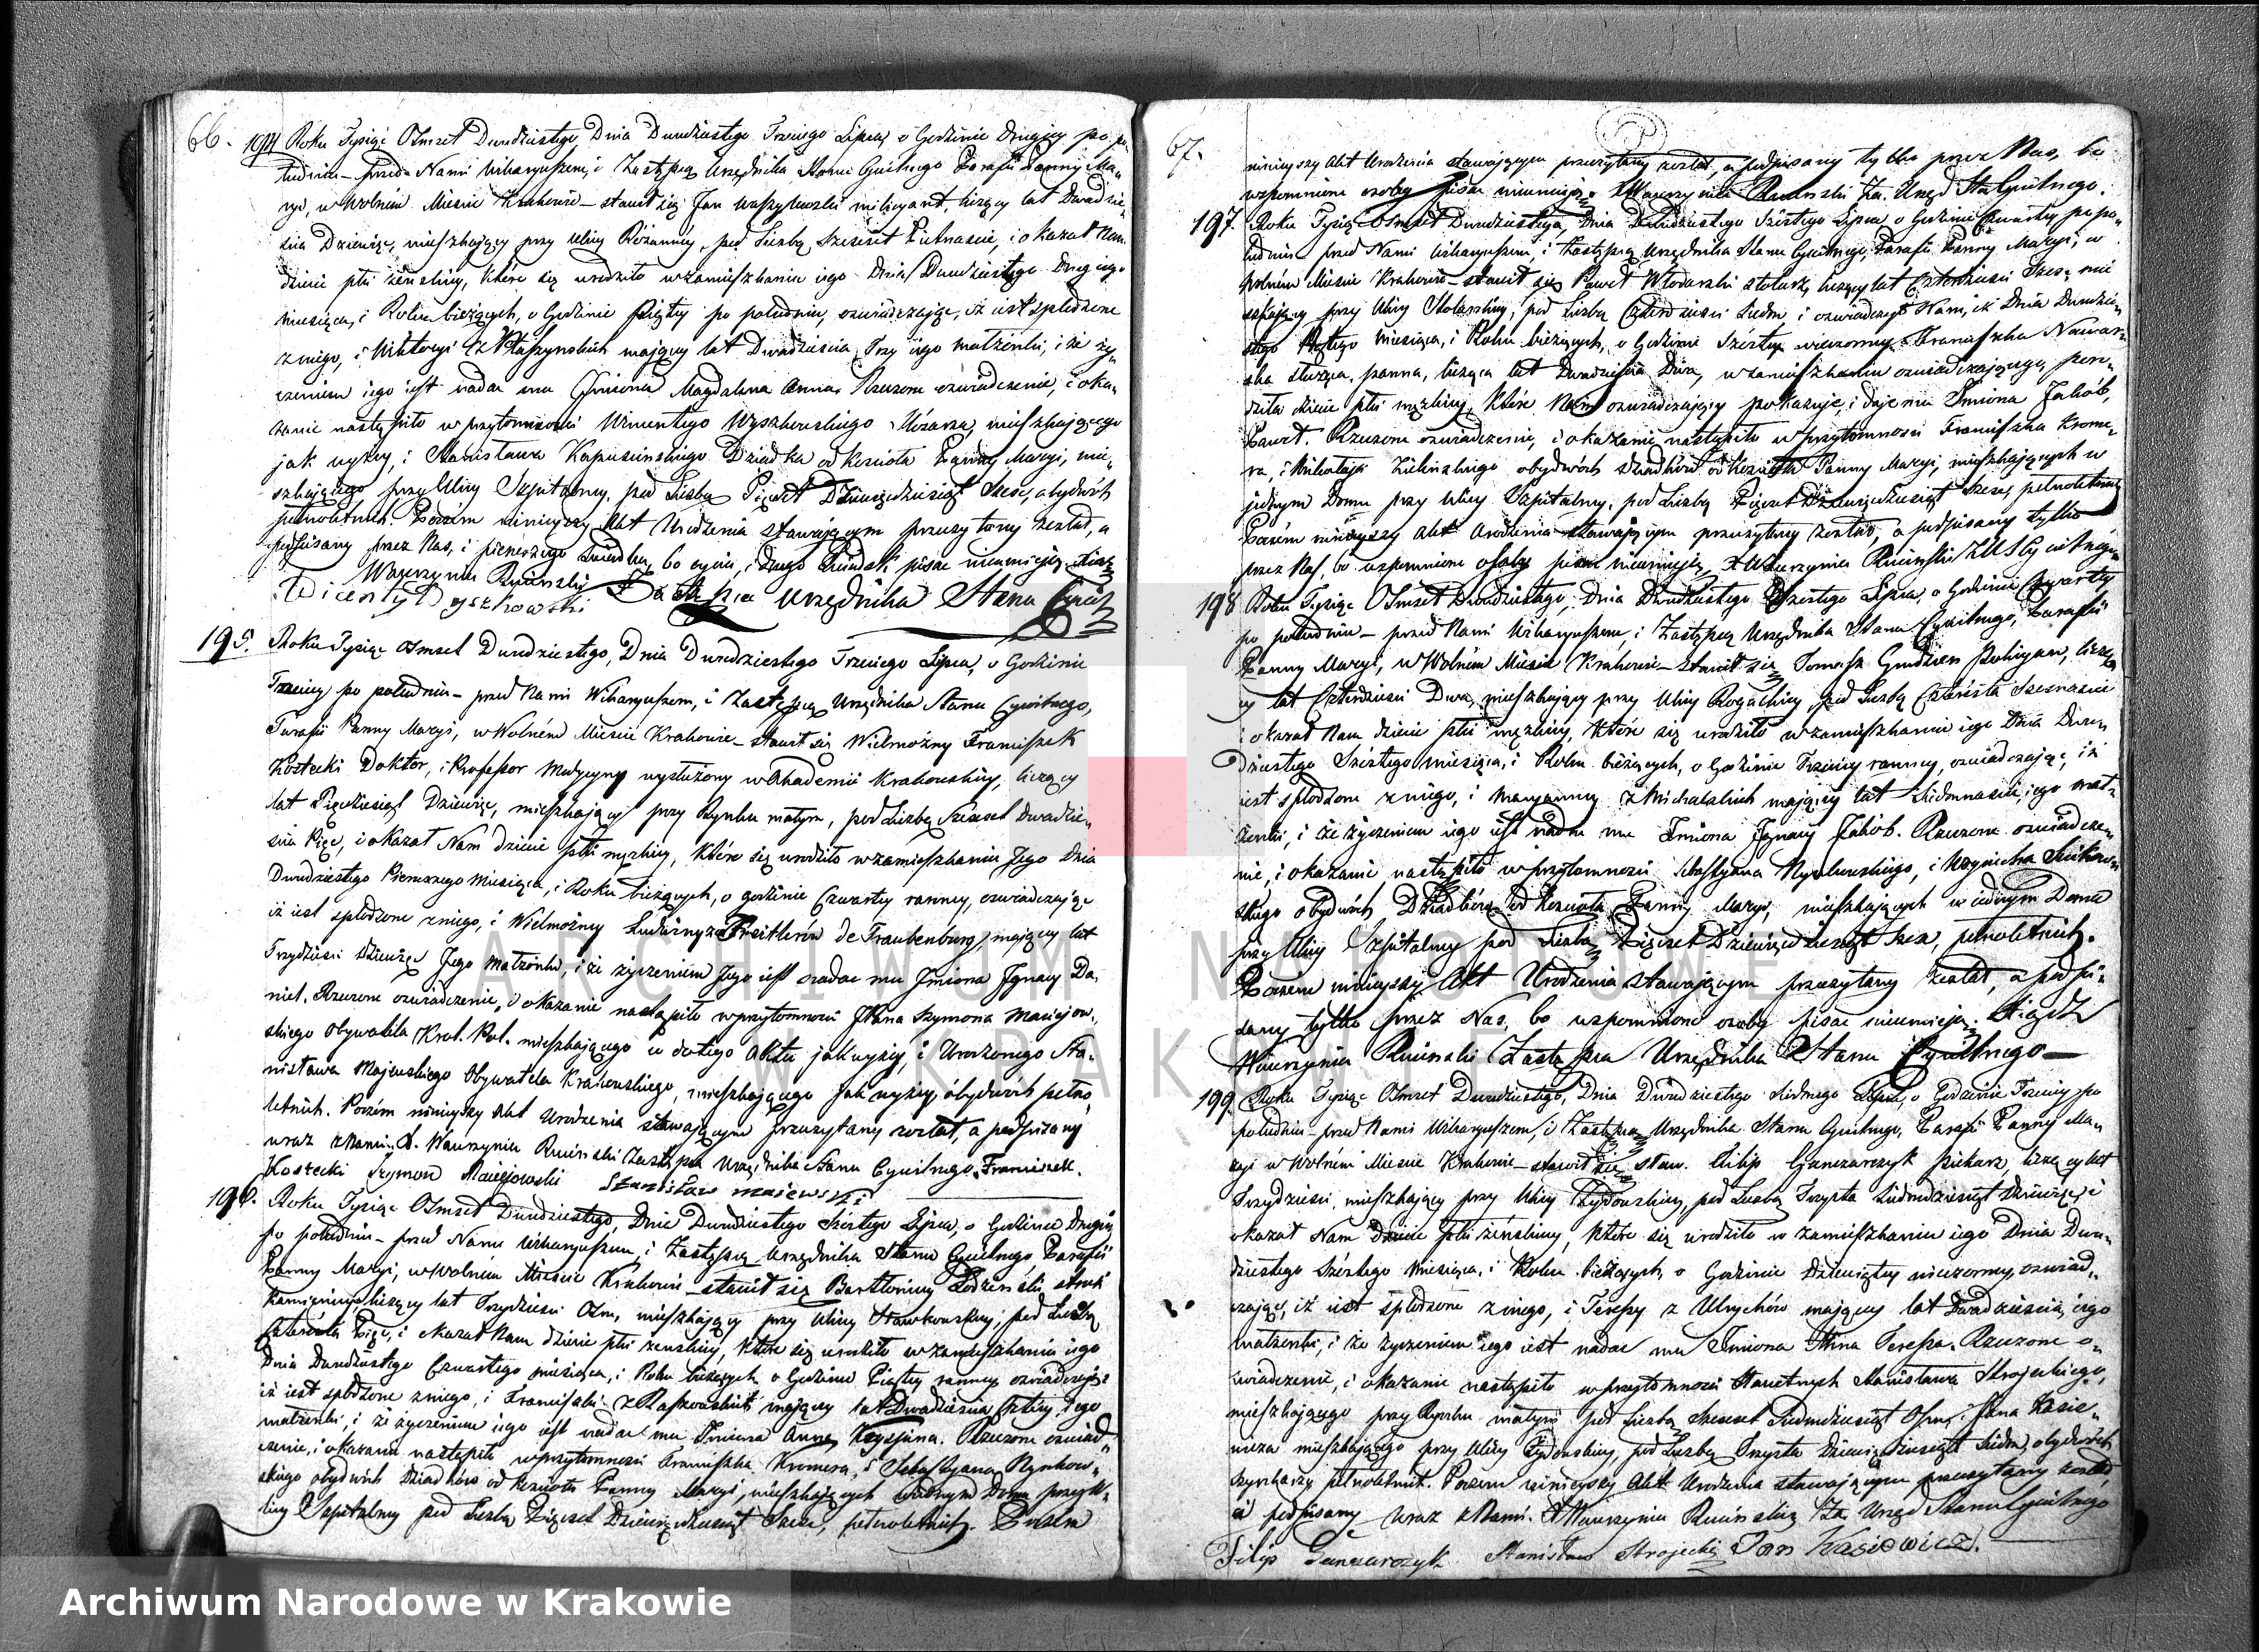 66.
194 Roku Tysiąc Ośmset Dwudziestego, Dnia Dwudziestego Trzeciego Lipca, o Godzinie Drugiey po po„
łudniu – przed Nami Wikaryuszem, i Zastępcą Urzędnika Stanu Cywilnego Parafii Panny Ma„
ryi, w Wolném Mieście Krakowie – stawił się Jan milicyant, liczący lat Dwadzie„
ścia Dziewięć, mieszkający przy Ulicy Różannéy, pod Liczbą Sześćset Piętnaście, i okazał Nam
dziecie płci żeńskiey, które się urodziło w zamieszkaniu iego Dnia Dwudziestego Drugiego
miesiąca, i Roku bieżących, o Godzinie Piątey po południu, oświadczając, iż iest spłodzone
z niego, i Wiktoryi z maiącey lat Dwadzieścia Trzy iego małżonki, i że ży„
czeniem iego iest nadać mu Imiona Magdalena Anna. Rzeczone oświadczenie, i oka„
zanie nastąpiło w przytomności Wincentego Wyszkowskiego mieszkającego
jak wyżey, i Stanisława Kapuscińskiego Dziadka od Kościoła Panny Maryi, mie„
szkającego przy Ulicy Szpitalney, pod Liczbą Pięćset Dziewięćdziesiąt Sześć, obydwóch
pełnoletnich. Poczém ninieyszy Akt Urodzenia stawaiącym przeczytany został, a
podpisany przez Nas, i pierwszego Świadka, bo oyciec, i drugi Świadek pisać nieumieją.
Wawrzyniec Ruciński Zastępca Urzędnika Stanu Cywil
Wicenty Wyszkowski
195. Roku Tysiąc Ośmset Dwudziestego, Dnia Dwudziestego Trzeciego Lipca, o Godzinie
Trzeciey po południu – przed Nami Wikaryuszem, i Zastępcą Urzędnika Stanu Cywilnego,
Parafii Panny Maryi, w Wolném Mieście Krakowie – stawił się Wielmożny Franciszek
Kostecki Doktor, i Professor Medycyny wysłużony w Akademii Krakowskiey, liczący
lat Pięćdziesiąt Dziewięć, mieszkający przy Rynku małym, pod Liczbą Sześćset Dwadzie„
ścia Pięć, i okazał Nam dziecie płci męzkiey, które się urodziło w zamieszkaniu Jego Dnia
Dwudziestego Pierwszego Miesiąca, i Roku bieżących, o godzinie Czwartey ranney, oświadczając
iż iest spłodzone z niego, i Wielmożney Ludwiki z de Traubenburg, maiącey lat
Trzydzieści Dziewięć Jego Małżonki, i że życzeniem Jego iest nadać mu Imiona Ignacy Da„
niel. Rzeczone oświadczenie, i okazanie nastąpiło w przytomności JPana Szymona Maciejow„
skiego Obywatela Król. Pol. mieszkającego w całego Aktu jak wyżey, i Urodzonego Sta„
nisława Majewskiego Obywatela Krakowskiego, mieszkającego jak wyżey, obydwóch pełno„
letnich. Poczém ninieyszy Akt Urodzenia stawaiącym przeczytany został, a podpisany
wraz z Nami. X. Wawrzyniec Ruciński Zastępca Urzędnika Stanu Cywilnego. Franciszek
Kostecki Szymon Maciejowski Stanisław Majewski
196. Roku Tysiąc Ośmset Dwudziestego, Dnia Dwudziestego Szóstego Lipca, o Godzinie Drugiey
po południu – przed Nami Wikaryuszem, i Zastępcą Urzędnika Stanu Cywilnego Parafii
Panny Maryi, w Wolném Mieście Krakowie – stawił się Bartłomiey stróż
Kamienicy, liczący lat Trzydzieści Ośm, mieszkający przy Ulicy Sławkowskiey, pod Liczbą
Czterysta Pięć, i okazał Nam dziecie płci żenskiey, które się urodziło w zamieszkaniu iego
Dnia Dwudziestego Czwartego miesiąca, i Roku bieżących, o Godzinie Piątey ranney oświadczając
iż iest spłodzone z niego, i Franciszki z Raszowskich maiącey lat Dwadzieścia Cztery Jego
małżonki, i że życzeniem iego iest nadać mu Imiona Anna Krystyna. Rzeczone oświad„
czenie, i okazanie nastąpiło w przytomności Franciszka Kromera, i Sebastyana Rynkow„
skiego obydwóch Dziadków od Kościoła Panny Maryi, mieszkających w iednym Domu przy U„
licy Szpitalney pod Liczbą Pięćset Dziewięćdziesiąt Sześć, pełnoletnich. Poczem
67.
ninieyszy Akt Urodzenia stawaiącym przeczytany został, a podpisany tylko przez Nas, bo
wspomnione osoby pisać nieumieją. X Wawrzyniec Ruciński Za. Urzęd. Sta. Cywilnego.
197. Roku Tysiąc Ośmset Dwudziestego, Dnia Dwudziestego Szóstego Lipca o Godzinie Czwartey po po„
łudniu przed Nami Wikaryuszem, i Zastępcą Urzędnika Stanu Cywilnego, Parafii Panny Maryi, w
Wolném Mieście Krakowie – stawił się Paweł Włodarski stolarz, liczący lat Czterdzieści Sześć mie
szkający przy Ulicy Stolarskiey, pod Liczbą Czterdzieści Siedm i oświadczył Nam, iż Dnia Dwudzie„
stego Piątego Miesiąca, i Roku bieżących, o Godzinie Szóstey wieczorney Franciszka Nawar„
ska służąca, panna, licząca lat Dwadzieścia Dwa, w zamieszkaniu oświadczającego, poro„
dziła dziecie płci męzkiey, które Nam oświadczający pokazuje, i daje mu Imiona Jakób,
Paweł. Rzeczone oświadczenie, i okazanie nastąpiło w przytomności Franciszka Krome„
ra, i Mikołaja Zielińskiego obydwóch dziadków od Kościoła Panny Maryi, mieszkających w
jednym Domu przy Ulicy Szpitalney, pod Liczbą Pięćset Dziewięćdziesiąt Sześć, pełnoletnich
Poczém ninieyszy Akt Urodzenia stawaiącym przeczytany został, a podpisany tylko
przez Nas, bo wspomnione osoby pisać nieumieją. X Wawrzyniec Ruciński Z U S Cywilnego
198 Roku Tysiąc Ośmset Dwudziestego, Dnia Dwudziestego Szóstego Lipca, o Godzinie Czwartey
po południu – przed Nami Wikaryuszem, i Zastępcą Urzędnika Stanu Cywilnego, Parafii
Panny Maryi, w Wolném Mieście Krakowie – stawił się Tomasz Gudzien Policyan, liczą„
cy lat Czterdzieści Dwa, mieszkający przy Ulicy Rogackiey, pod Liczbą Czterysta Szesnaście
i okazał Nam dziecie płci męzkiey, które się urodziło w zamieszkaniu iego Dnia Dwu„
Dziestego Szóstego miesiąca, i Roku bieżących, o Godzinie Trzeciey ranney, oświadczając, iż
iest spłodzone z niego, i Maryanny z Michalskich maiącey lat Siedmnaście, iego mał„
żonki, i że życzeniem iego iest nadać mu Imiona Ignacy Jakób. Rzeczone oświadcze„
nie, i okazanie nastąpiło w przytomności Sebastyana Rynkowskiego, i Woyciecha
skiego obydwóch Dziadków od Kościoła Panny Maryi, mieszkających w iednym Domu
przy Ulicy Szpitalney pod Liczbą Pięćset Dziewięćdziesiąt Sześć, pełnoletnich.
Poczem ninieyszy Akt Urodzenia stawaiącym przeczytany został, a podpi„
sany tylko przez Nas, bo wspomnione osoby pisać nieumieją. Xiądz
Wawrzyniec Ruciński Zastępca Urzędnika Stanu Cywilnego –
199. Roku Tysiąc Ośmset Dwudziestego, Dnia Dwudziestego Siódmego Lipca, o Godzinie Trzeciey po
południu – przed Nami Wikaryuszem, i Zastępcą Urzędnika Stanu Cywilnego, Parafii Panny Ma„
ryi w Wolném Mieście Krakowie – stawił się staw. Filip Ganczarczyk Piekarz, liczący lat
Trzydzieści, mieszkający przy Ulicy Żydowskiey, pod Liczbą Trzysta Siedmdziesiąt Dziewięć, i
okazał Nam Dziecie płci żeńskiey, które się urodziło w zamieszkaniu iego Dnia Dwu„
dziestego Szóstego Miesiąca, i Roku bieżących, o Godzinie Dziewiątey wieczorney, oświad„
czając, iż iest spłodzone z niego, i Teressy z Ulrychów maiącey lat Dwadzieścia, iego
małżonki, i że życzeniem iego iest nadać mu Imiona Anna Teressa. Rzeczone o„
świadczenie, i okazanie nastąpiło w przytomności Sławetnych Stanisława Strojeckiego,
mieszkającego przy Rynku małym pod Liczbą Sześćset Siedmdziesiąt Ośm, i Jana Kasio„
wicza mieszkającego przy Ulicy Żydowskiey, pod Liczbą Trzysta Dziewięćdziesiąt Siedm, obydwóch
pełnoletnich. Poczem ninieyszy Akt Urodzenia stawaiącym przeczytany został
a podpisany wraz z Nami. X Wawrzyniec Ruciński Za. Urzęd Stanu Cywilnego
Filip Ganczarczyk Stanisław Strojecki Jan Kasiowicz.
ARCHIWUM NARODOWE
W KRAKOWIE
Archiwum Narodowe w Krakowie